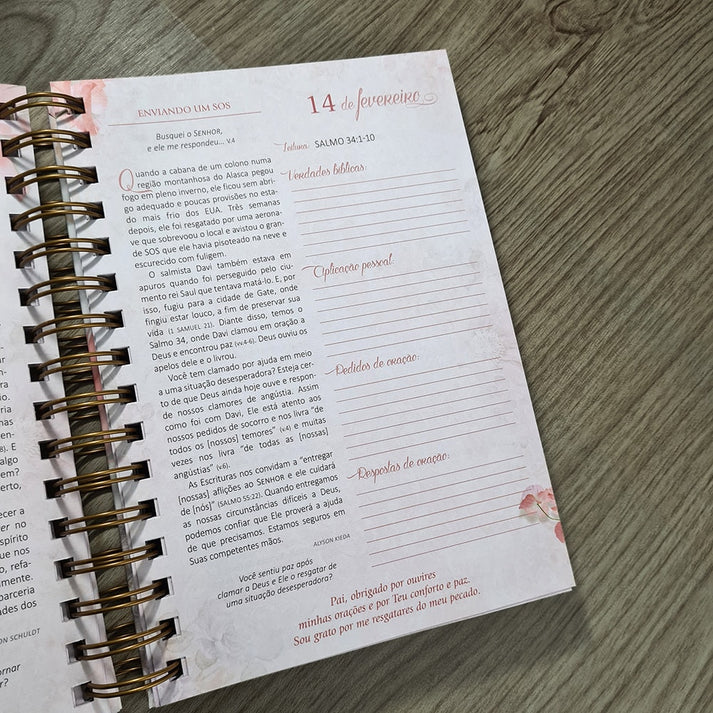 ENVIANDO UM SOS
14 de fevereiro
Busquei o SENHOR,
e ele me respondeu... V.4
Quando a cabana de um colono numa
região montanhosa do Alasca pegou
fogo em pleno inverno, ele ficou sem abri-
go adequado e poucas provisões no esta-
do mais frio dos EUA. Três semanas
depois, ele foi resgatado por uma aerona-
ve que sobrevoou o local e avistou o gran-
de SOS que ele havia pisoteado na neve e
escurecido com fuligem.
O salmista Davi também estava em
apuros quando foi perseguido pelo ciu-
mento rei Saul que tentava matá-lo. E, por
isso, fugiu para a cidade de Gate, onde
fingiu estar louco, a fim de preservar sua
vida (1 SAMUEL 21). Diante disso, temos o
Salmo 34, onde Davi clamou em oração a
Deus e encontrou paz (vv.4-6). Deus ouviu os
apelos dele e o livrou.
Você tem clamado por ajuda em meio
a uma situação desesperadora? Esteja cer-
to de que Deus ainda hoje ouve e respon-
de nossos clamores de angústia. Assim
como foi com Davi, Ele está atento aos
nossos pedidos de socorro e nos livra “de
todos os [nossos] temores” (v.4) e muitas
vezes nos livra “de todas as [nossas]
angústias” (v.6).
As Escrituras nos convidam a “entregar
[nossas] aflições ao SENHOR e ele cuidará
de [nós]” (SALMO 55:22). Quando entregamos
as nossas circunstâncias difíceis a Deus,
podemos confiar que Ele proverá a ajuda
de que precisamos. Estamos seguros em
Suas competentes mãos.
ALYSON KIEDA
Você sentiu paz após
clamar a Deus e Ele o resgatar de
uma situação desesperadora?
Leitura: SALMO 34:1-10
Verdades bíblicas:
Aplicação pessoal:
Pedidos de oração:
Respostas de oração:
Pai, obrigado por ouvires
minhas orações e por Teu conforto e paz.
Sou grato por me resgatares do meu pecado.